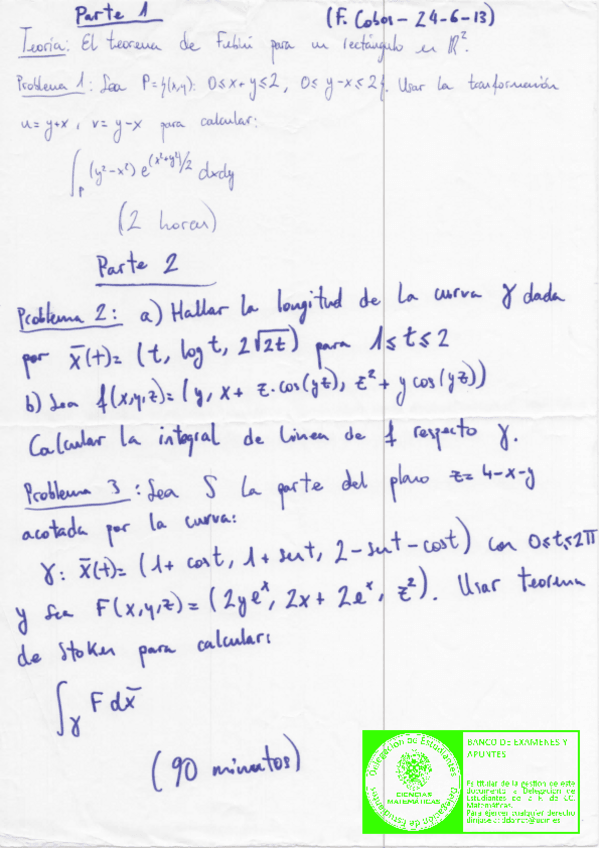 Parte 1
(F. Cobos - 24-6-13)
Teoría: El teorema de Fubini para un rectángulo en ℝ².
Problema 1: Sea P={(x,y): 0≤x+y≤2, 0≤y-x≤2}. Usar la transformación
u=y+x, v=y-x para calcular:
∫_P (y²-x²) e^{(x²+y²)/2} dxdy
(2 horas)
Parte 2
Problema 2: a) Hallar la longitud de la curva γ dada
por x̄(t)=(t, log t, 2√2t) para 1≤t≤2
b) Sea f(x,y,z)=(y, x+z·cos(yz), z²+y cos(yz))
Calcular la integral de línea de f respecto γ.
Problema 3: Sea S la parte del plano z=4-x-y
acotada por la curva:
γ: x̄(t)=(1+cost, 1+sent, 2-sent-cost) con 0≤t≤2π
y sea F(x,y,z)=(2ye^x, 2x+2e^x, z²). Usar teorema
de Stokes para calcular:
∫_γ F dx̄
(90 minutos)
Delegación de Estudiantes
CIENCIAS
MATEMÁTICAS
Delegación de Estudiantes
BANCO DE EXAMENES Y
APUNTES
Es titular de la gestion de este
documento la Delegacion de
Estudiantes de la F. de CC.
Matemáticas.
Para ejercer cualquier derecho